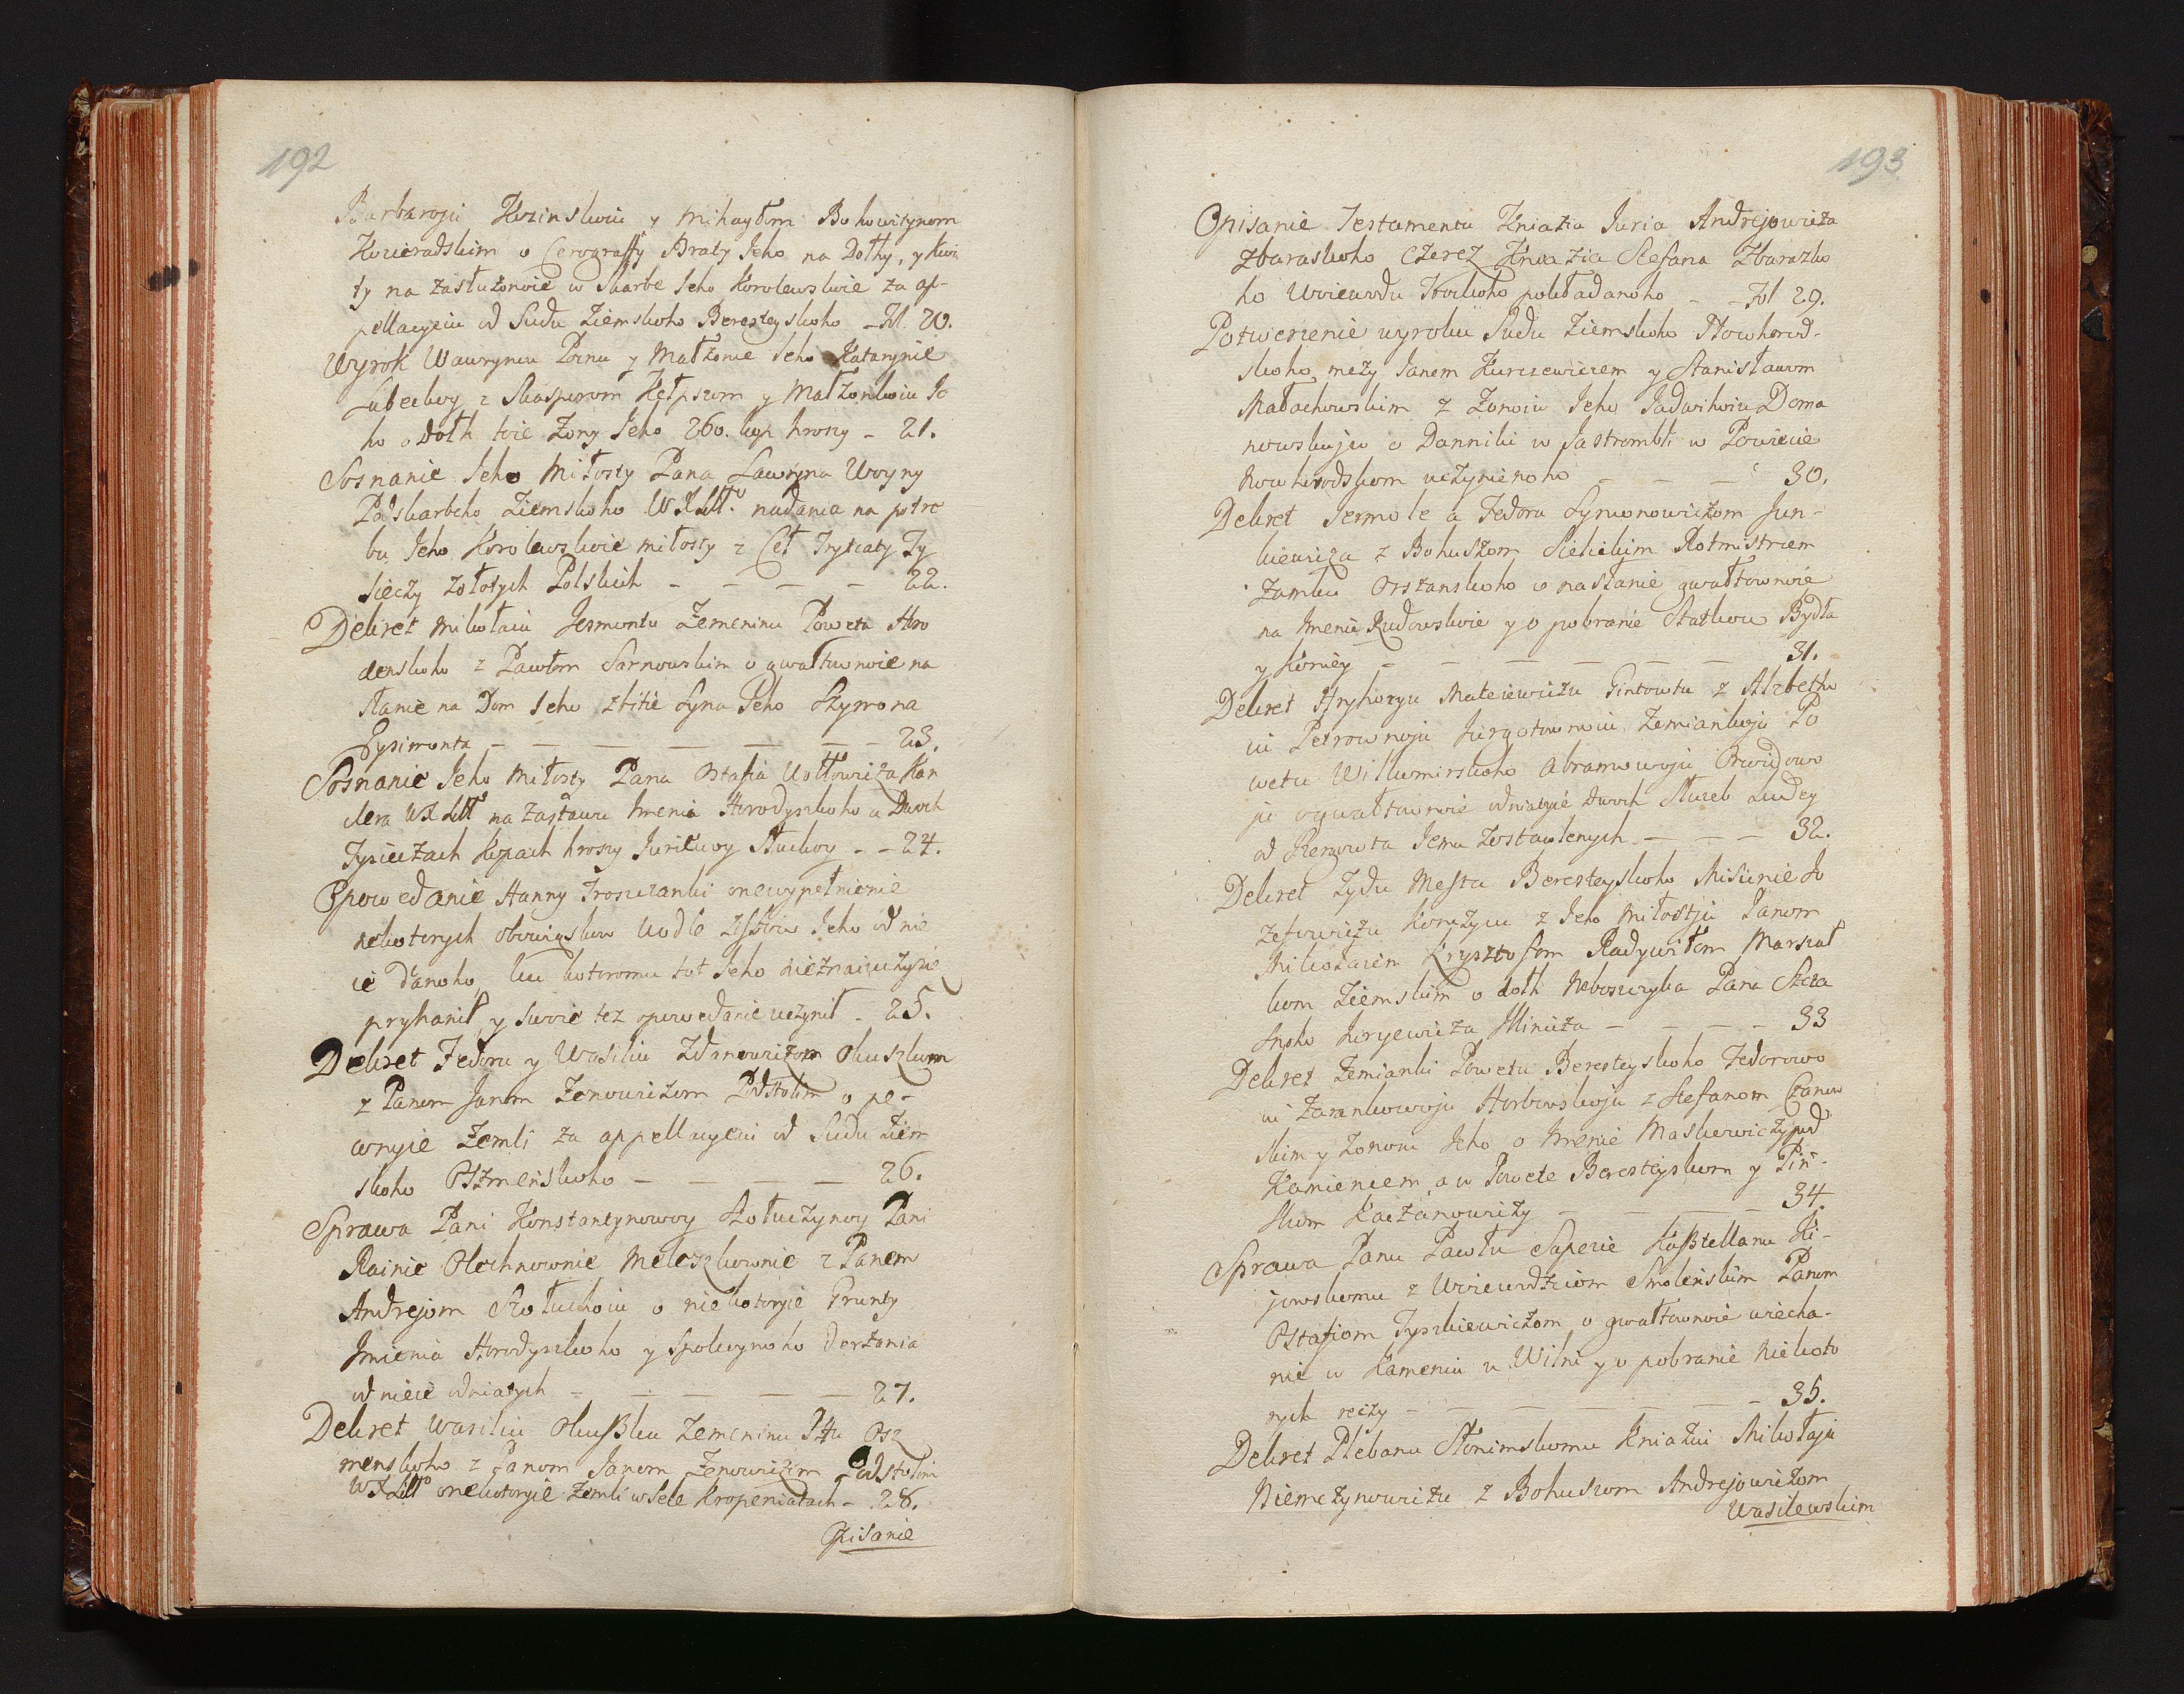 192
Barbaroju Kozinskoiu y Mihayłom Bohowitynom
Kozieradskim o Cerograffy Braty Jeho na Dołhy, y kwi
ty na zasłużonoie w Skarbe Jeho Korolewskoie za ap-
pellacyeiu od Sudu Ziemskoho Beresteyskoho – Fol. 20.
Wyrok Wawryncu Pacnu y Małżonce Jeho Katarynie
Lubeckoy z Kasperom Kełpszom y Małżonkoiu Je
ho o dołh toie Żony Jeho 260. kop hroszy – 21.
Sosnanie Jeho Miłosty Pana Ławryna Woyny
Podskarbeho Ziemskoho WXLitto. nadania na potre
bu Jeho Korolewskoie miłosty z Ceł Trytcaty Ty
sieczy zołotych Polskich – – – – 22.
Dekret Mikołaiu Jesmontu Zemeninu Poweta Hro
denskoho z Pawłom Sarnowskim o gwałtownoie na
słanie na Dom Jeho zbitie Syna Jeho Szymona
Eysimonta – – – – – – – 23.
Sosnanie Jeho Miłosty Pana Ostafia Wołłowicza Kan
clera WXLitto na zastawu Imenia Horodyszkoho u Dwoch
Tysieczach kopach hroszy Juriewoy Słuckoy – – 24.
Opowedanie Hanny Troszczanki o newypełnienie
nekotorych obowiązkow wodle Listow Jeho od nie
ie danoho, ku kotoromu tot Jeho nieznaiuczysie
pryhanił, y swoie tez opowedanie uczynił – 25.
Dekret Fedoru y Wasiliu Zdanowiczom Okuszkom
z Panom Janom Zenowiczom Podstolim o pe-
wnyie Zemli za appellacyeiu od Sudu Ziem
skoho Oszmenskoho – – – – 26.
Sprawa Pani Konstantynowoy Szołuchynoy Pani
Rainie Olechnownie Meleszkownie z Panem
Andrejom Szołuchoiu o niekotoryie Grunty
Imienia Horodyszkoho y Spolczynoho derżania
od nieie odniatych – – – – – 27.
Dekret Wasiliu Okuszku Zemeninu Pttu Osz
menskoho z Panom Janom Zenowiczem Podstolim
WXLitto o nekotoryie Zemli w Sele Kropeniatach – 28.
Opisanie
193
Opisanie Testamentu Kniazia Juria Andrejowicza
Zbaraskoho Czerez Kniazia Stefana Zbarazko
ho Woiewodu Trockoho pokładanoho – – Fol 29.
Potwerzenie wyroku Sudu Ziemskoho Nowhorod-
skoho, mezy Janem Kurczewiczem y Stanisławom
Małachowskim z Zonoiu Jeho Jadwihoiu Doma
nowskoju o Danniki w Jastrombli w Powiecie
Nowhorodskom uczynienoho – – – 30.
Dekret Jermole a Fedoru Symonowiczom Jun-
kiewicza z Bohuszom Sielickim Rotmistrzem
Zamku Orszanskoho o nasłanie gwałtownoie
na Imenie Rudowskoie y o pobranie Statkow Bydła
y Koniey – – – – – – 31.
Dekret Hryhoryu Mateiewiczu Gintowtu z Alzbetho
iu Petrownoju Jurgotownoiu, Zemiankoju Po
wetu Wilkomirskoho Abramowoju Orwidowo
ju o gwałtownoie odniatyie dwoch Służeb Ludey
od Renowta Jemu zostawlenych – – – 32.
Dekret Zydu Mesta Beresteyskoho Misiunie Jo
zefowiczu Konczycu z Jeho Miłostju Panom
Mikołaiem Krysztofom Radywiłom Marszał
kom Ziemskim o dołh Neboszczyka Pana Szcza
snoho Juryewicza Ilinicza – – – – 33
Dekret Zemianki Powetu Beresteyskoho Fedorowo
iu Zarankowoju Horbowskoju z Stefanom Czanow
skim y Zonoiu Jeho o Imenie Maskowiczy pod
Kamieniem, a w Powete Beresteyskom y Pin-
skom Kaczanowiczy – – – – – 34.
Sprawa Panu Pawłu Sapezie Kasztellanu Ki-
jowskomu z Woiewodziom Smolenskim Panom
Ostafiom Tyszkiewiczom o gwałtownoie wiecha-
nie w Kamenicu u Wilni y o pobranie niekoto
rych reczy – – – – – – – 35.
Dekret Plebanu Słonimskomu Kniaziu Mikołaju
Niemczynowiczu z Bohuszom Andrejowiczom
Wasilewskim